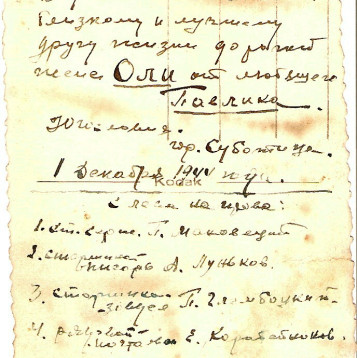 близкому и лучшему
другу жизни дорогой
жене Оли от любящего
Павлика.
Югославия.
гр. Суботица.
1 Декабря 1944 года.
Kodak
Слева на право:
1. Г. Маковецкий
2. старший
писарь А. Луньков.
3. старшина
П. Гломбоцкий
4. рядовой
Е. Коробейников.